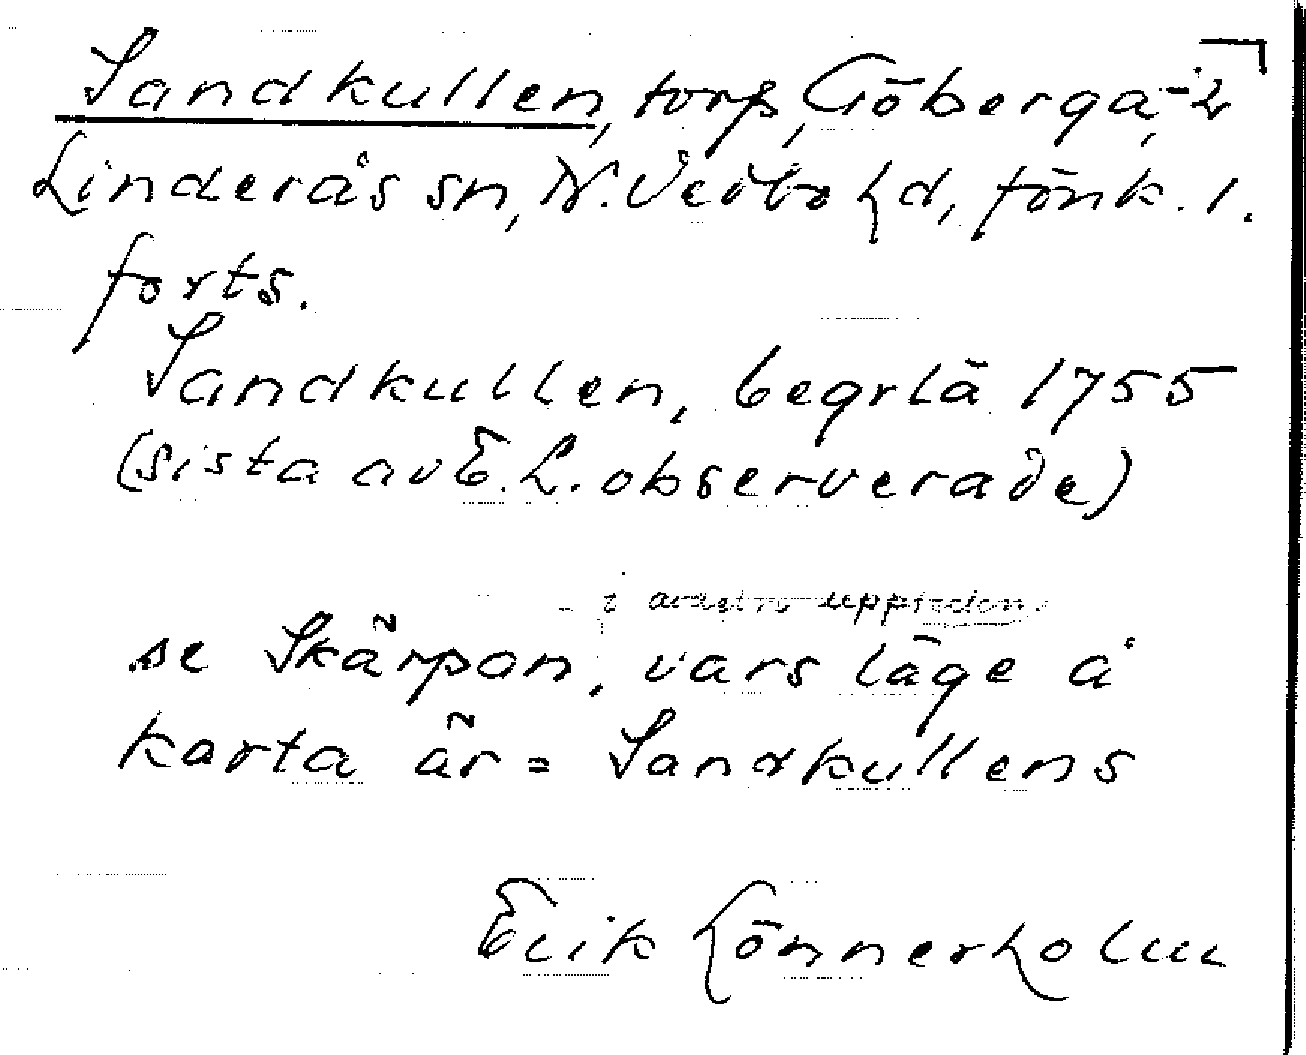 Sandkullen, torp, Göberga, -2
Linderås sn, N. Vedbo hd, Jönk. l.
forts.
Sandkullen, begrlä 1755
(sista av E. L. observerade)
i uppfiden
se Skärpan, vars läge å
karta är = Sandkullens
Erik Lönnerholm